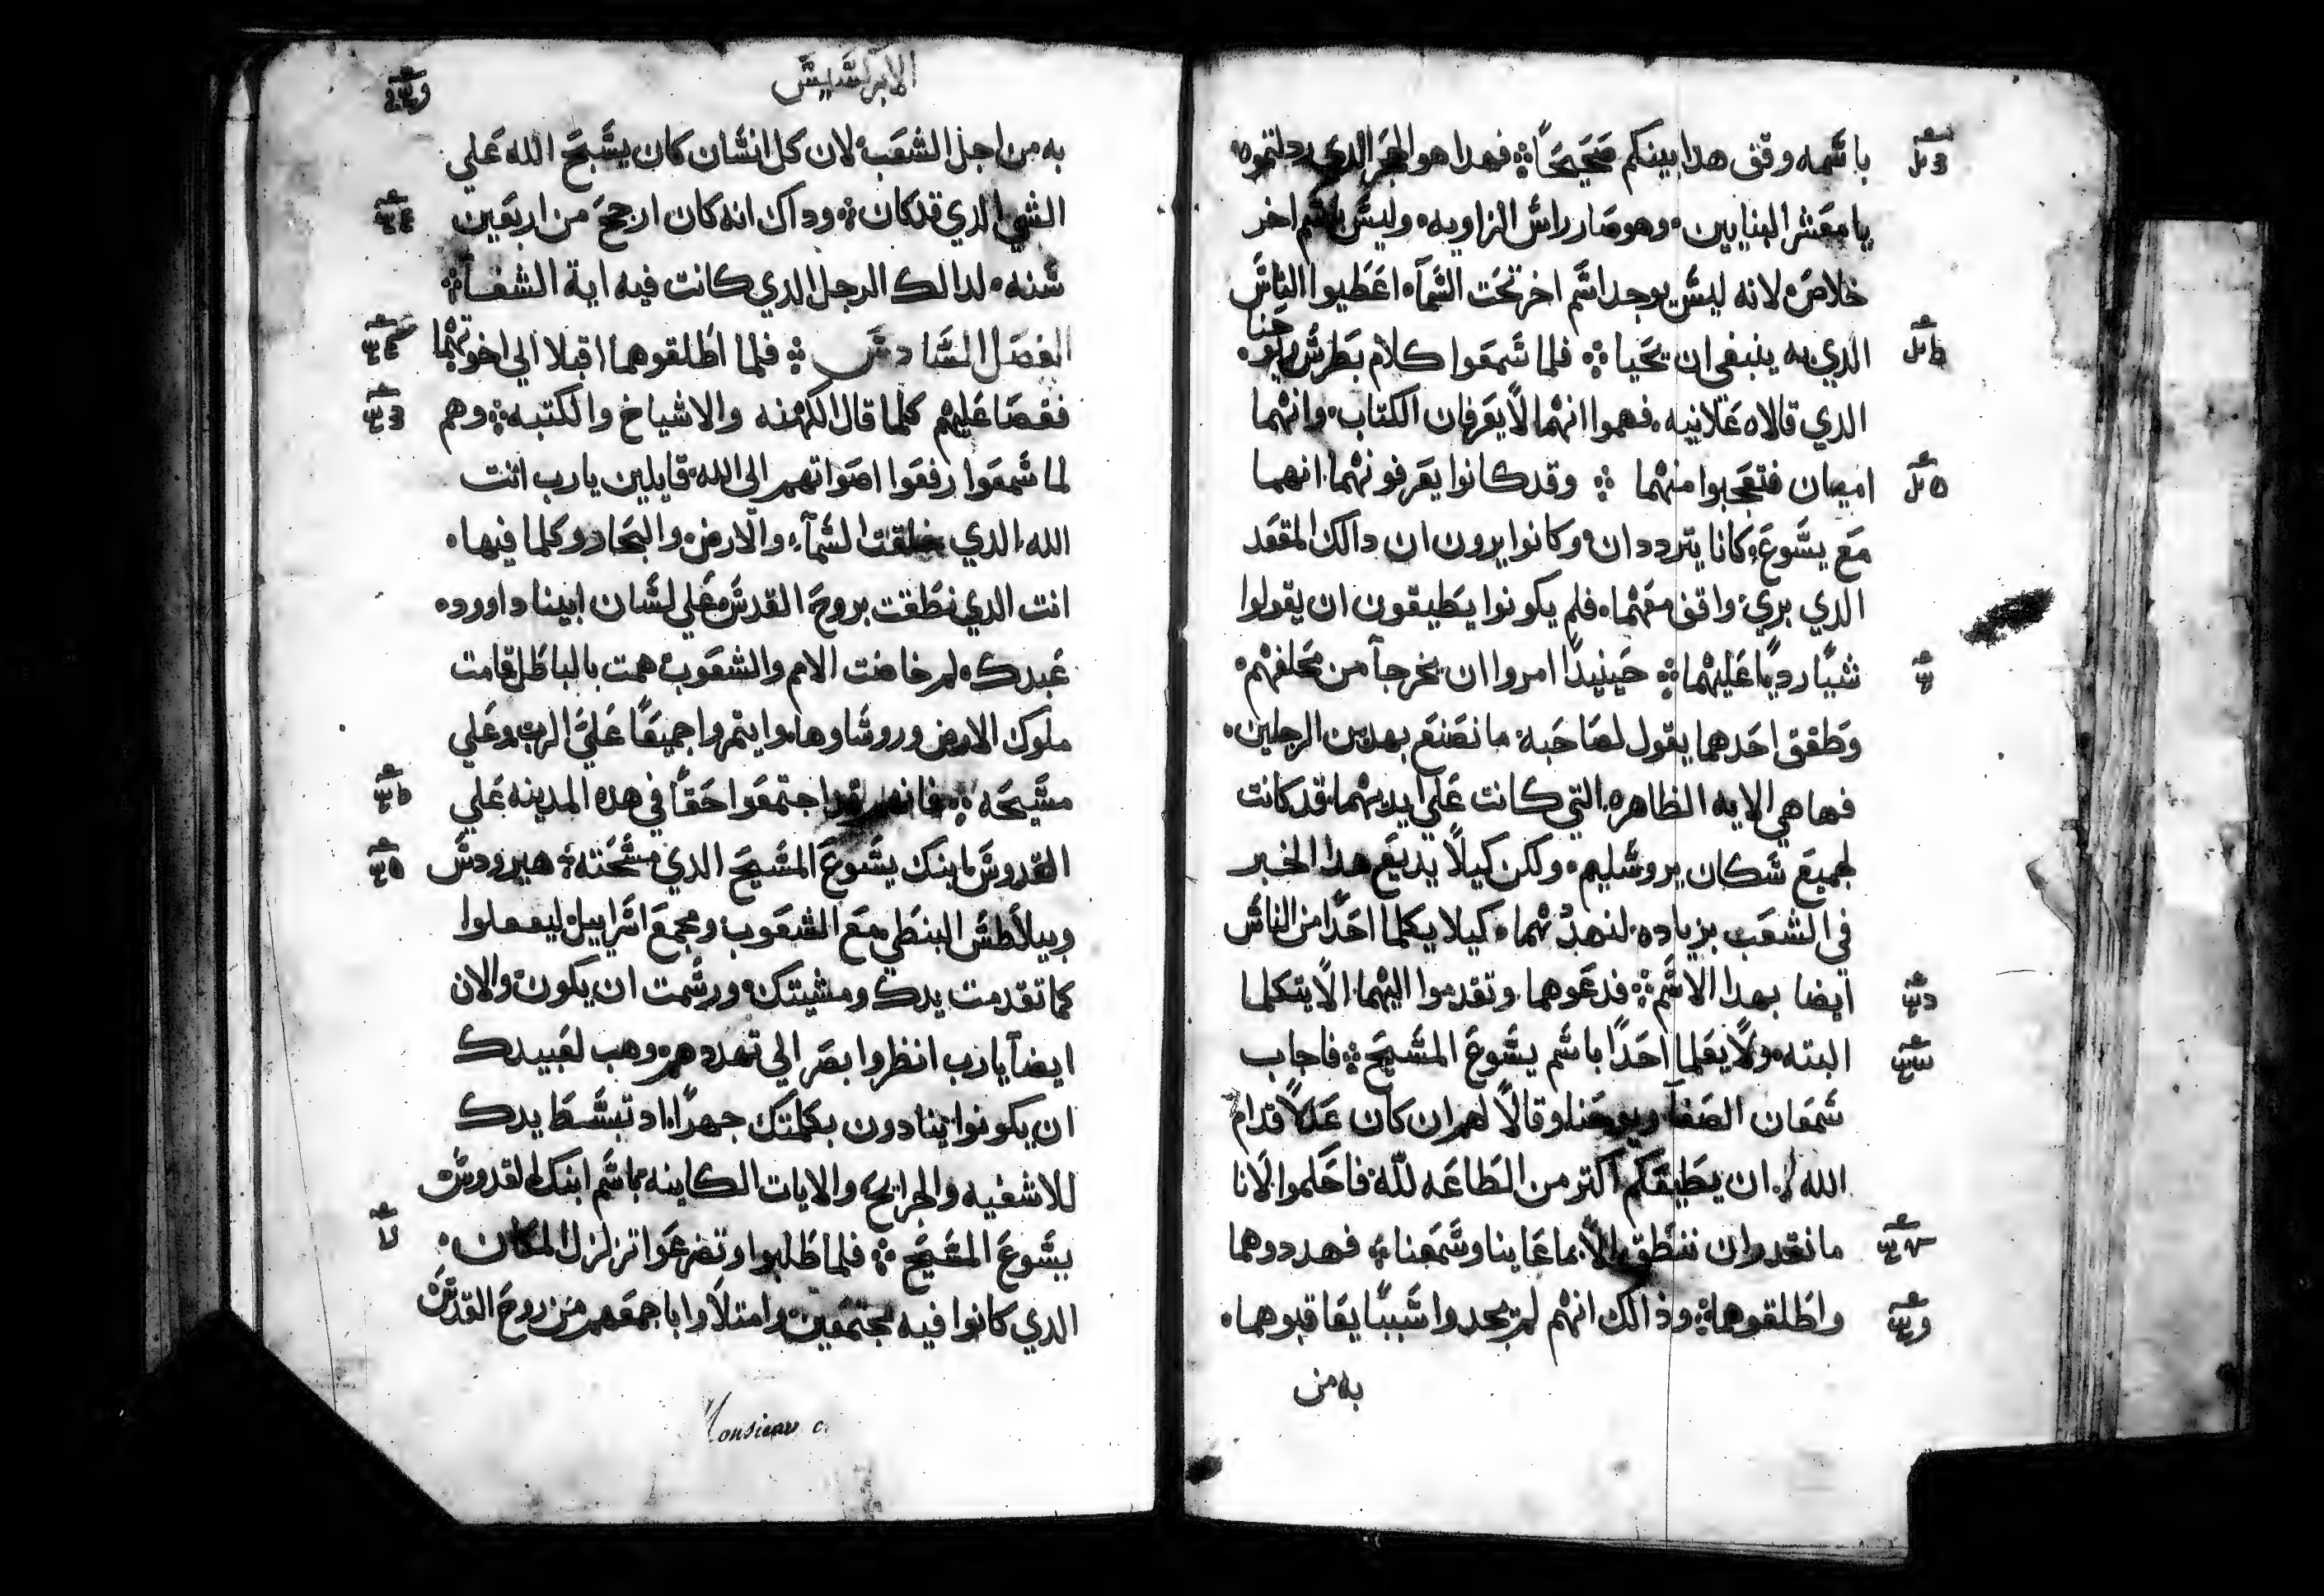 باسمه وقف هدا بينكم صحيحًا ۞ فهدا هو الحجر الدي ردلتموه
يا معشر البنايين وهو صار راس الزاويه وليس باسم اخر
خلاص لانه ليس يوجد اسم اخر تحت السمآ اعطيوا الناس
الدي به ينبغي ان يحيا ۞ فلما سمعوا كلام بطرس ويوحنا
الدي قالاه علانيه فهموا انهما لا يعرفان الكتاب وانهما
اميان فتعجبوا منهما ۞ وقد كانوا يعرفونهما انهما
مع يسوع كانا يترددان وكانوا يرون ان دالك المقعد
الدي بري واقف معهما فلم يكونوا يطيقون ان يقولوا
شيًا رديًا عليهما ۞ حينيدًا امروا ان يخرجآ من محلفهم
وطفق احدهما يقول لصاحبه ما نصنع بهدين الرجلين
فها هي الايه الظاهره التي كانت علي ايديهما قد كانت
لجميع سكان يروسليم ولكن كيلا يديع هدا الخبر
في الشعب بزياده لنهددهما كيلا يكلما احدًا من الناس
ايضا بهدا الاسم ۞ فدعوهما وتقدموا اليهما الا يتكلما
البته ولا يعلما احدًا باسم يسوع المسيح ۞ فاجاب
سمعان الصفآ ويوحنا وقالا لهم ان كان عدلاً قدام
الله ان يطيعكم اكتر من الطاعه لله فاحكموا لانا
ما نقدر ان ننطق الا بما عاينا وسمعنا ۞ فهددوهما
واطلقوهما ۞ وذالك انهم لم يجدوا سببًا يعاقبوهما
به من
الابركسيس
به من اجل الشعب لان كل انسان كان يسبح الله علي
الشي الدي قد كان ۞ وداك انه كان ارجح من اربعين
سنه لدالك الرجل الدي كانت فيه اية الشفآ ۞
الفصل السادس ۞ فلما اطلقوهما اقبلا الي اخوتهما
فقصا عليهم كلما قال الكهنه والاشياخ والكتبه ۞ وهم
لما سمعوا رفعوا اصواتهم الي الله قايلين يارب انت
الله الدي خلقت السمآء والارض والبحار وكلما فيها
انت الدي نطقت بروح القدس علي لسان ابينا داوود
عبدك لم خاضت الامم والشعوب همت بالباطل قامت
ملوك الارض وروساوها وايتمروا جميعًا علي الرب وعلي
مسيحه ۞ فانهم قد اجتمعوا حقًا في هده المدينه علي
القدوس ابنك يسوع المسيح الدي مسحته ۞ هيرودس
وبيلاطس البنطي مع الشعوب ومجمع اسراييل ليفعلوا
كما تقدمت يدك ومشيتك ورسمت ان يكون والان
ايضآ يارب انظر وابصر الي تهددهم وهب لعبيدك
ان يكونوا ينادون بكلمتك جهرًا اد تبسط يدك
للاشفيه والجرايح والايات الكاينه باسم ابنك القدوس
يسوع المسيح ۞ فلما طلبوا وتضرعوا تزلزل المكان
الدي كانوا فيه مجتمعين وامتلاوا باجمعهم من روح القدس